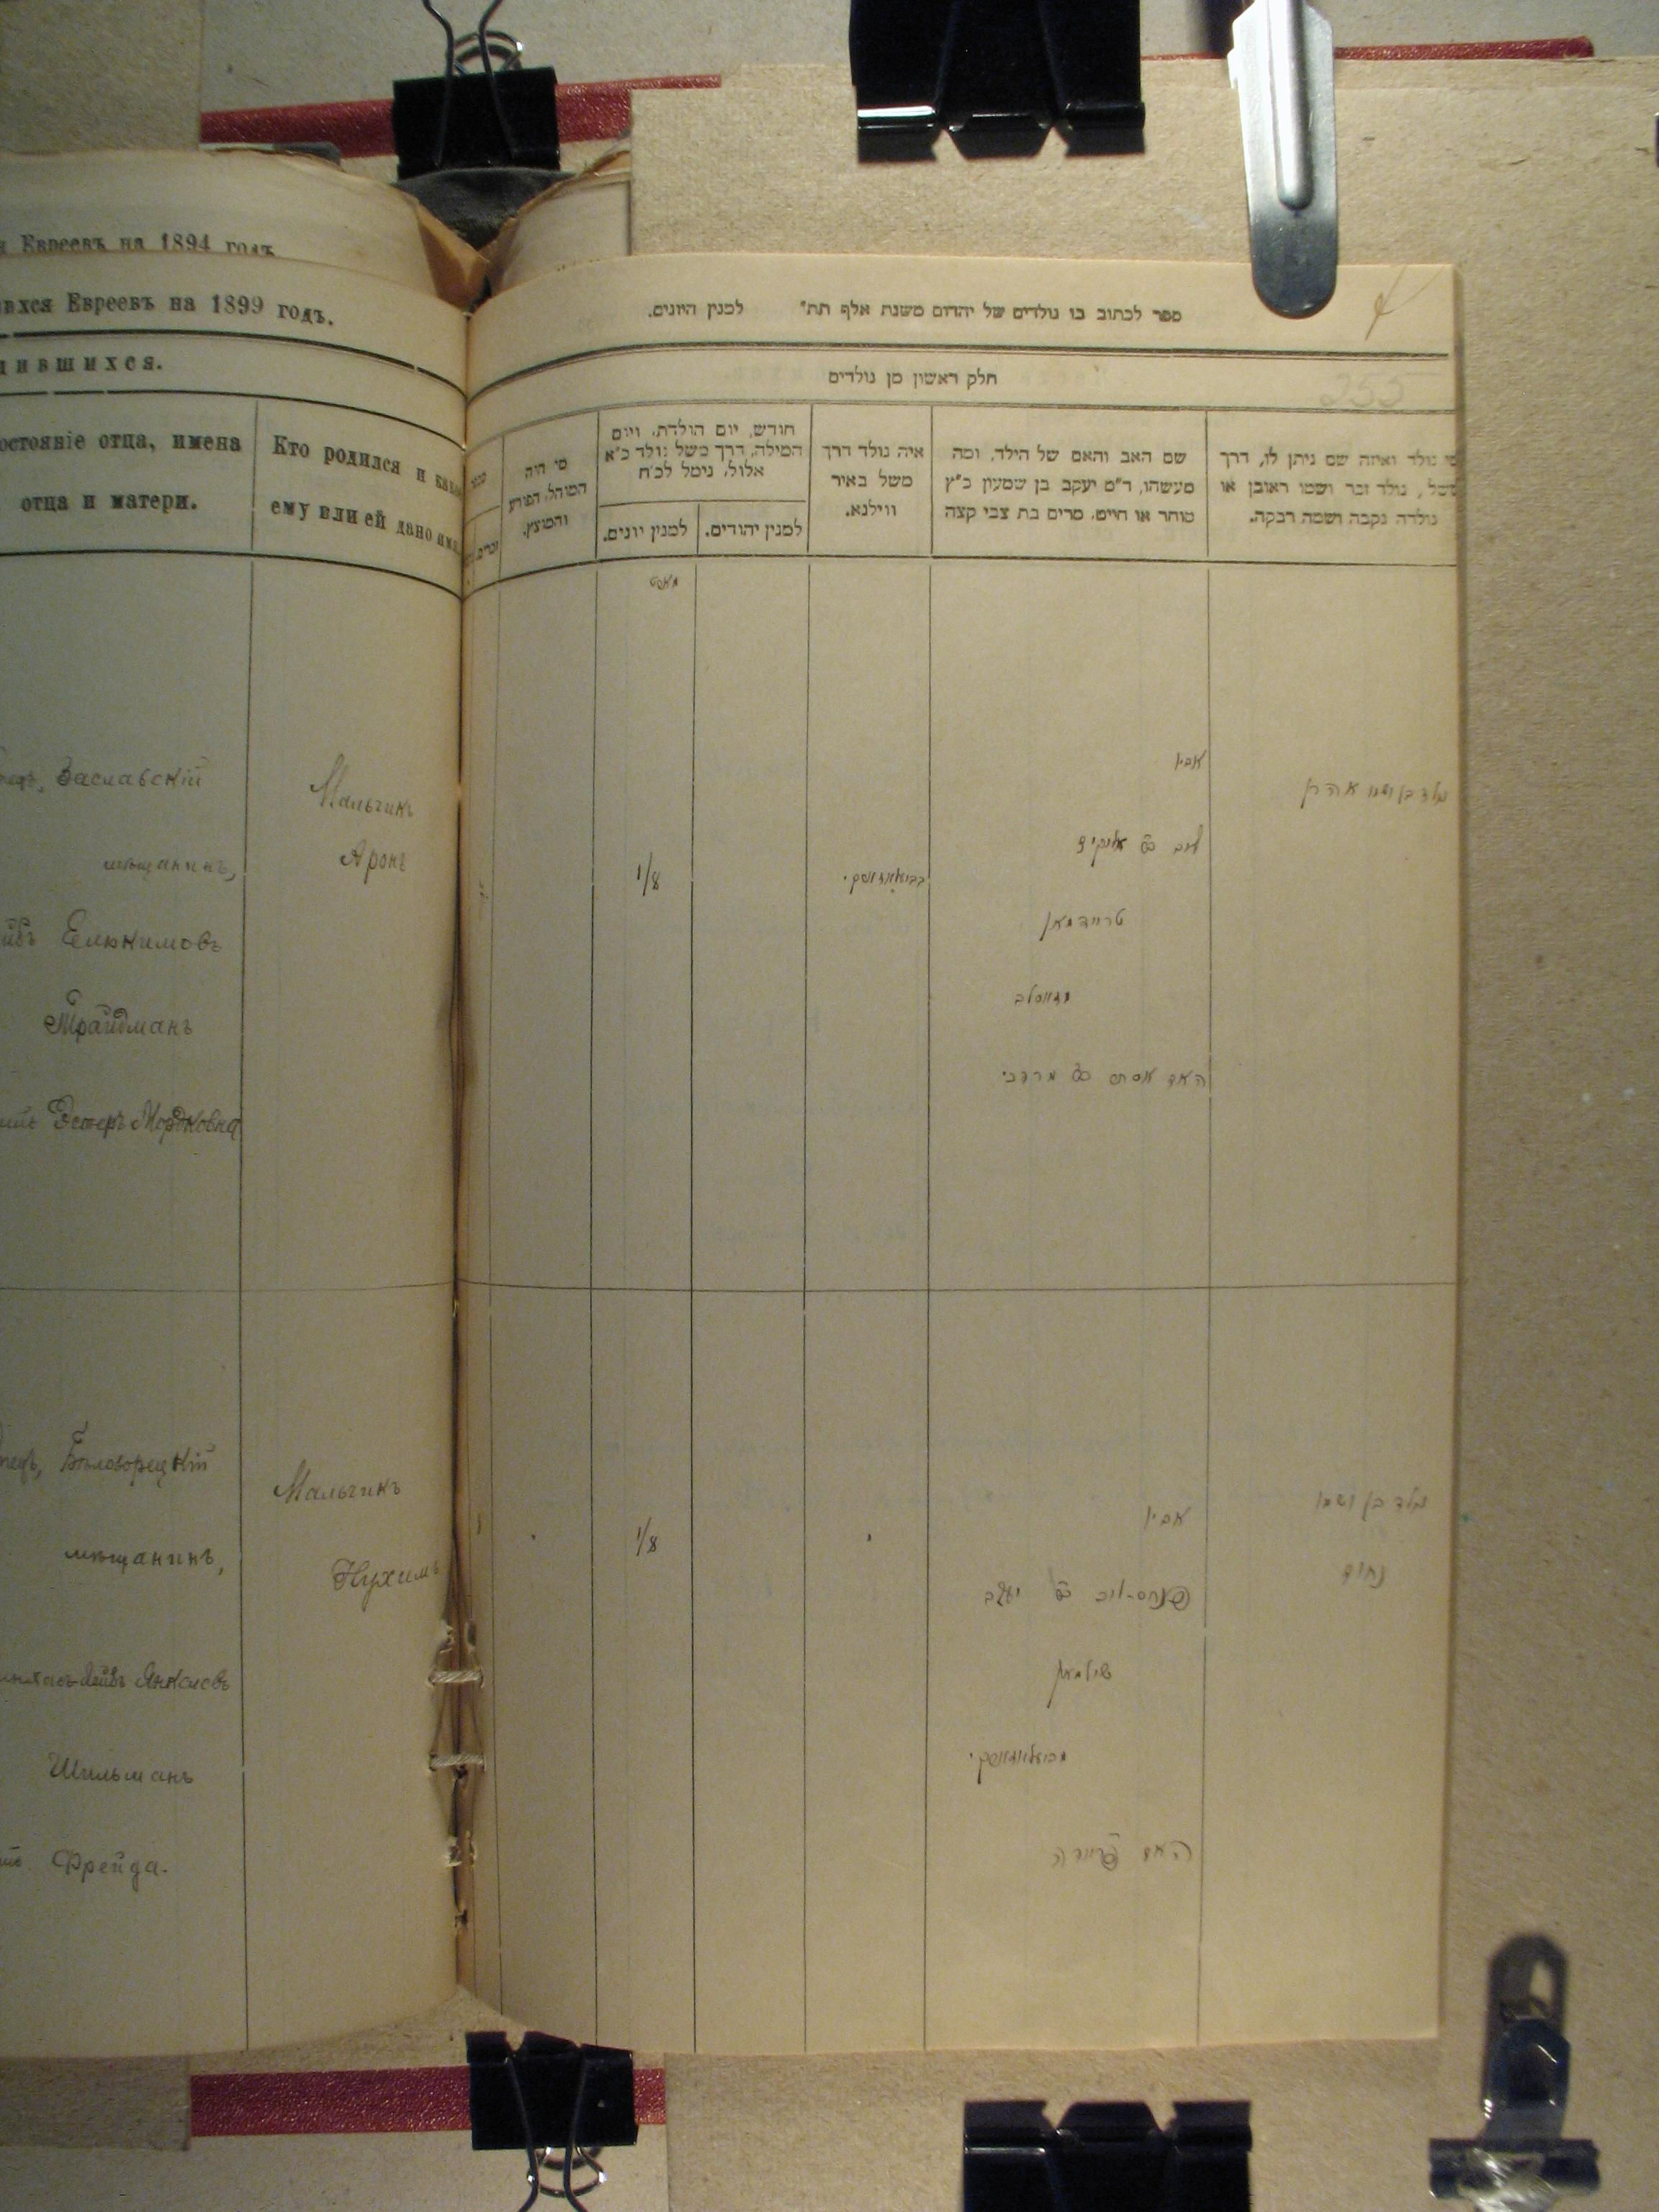 Евреевъ на 1894 годъ
вхся Евреевъ на 1899 годъ.
ившихся.
остояніе отца, имена
отца и матери.
Кто родился и како
ему или ей дано имя
Заславскій
мѣщанинъ,
Елюкимовъ
Трайдманъ
Эстеръ Мордковна
Мальчикъ
Аронъ
Бѣлозорецкій
мѣщанинъ,
Лейбъ Янкелевъ
Шильманъ
Фрейда.
Мальчикъ
Нухимъ
ספר לכתוב בו נולדים של יהדום משנת אלף תת״ למנין היונים.
חלק ראשון מן נולדים
מי נולד ואיזה שם ניתן לו, דרך
משל, נולד זכר ושמו ראובן או
נולדה נקבה ושמה רבקה.
שם האב והאם של הילד, ומה
מעשהו, ד״מ יעקב בן שמעון כ״ץ
סוחר או חייט, מרים בת צבי קצה
איה נולד דרך
משל באיר
ווילנא.
חודש, יום הולדת, ויום
המילה, דרך משל נולד כ״א
אלול, נימל לכ״ח
למנין יהודים.
למנין יונים.
מי היה
המוהל, הפורע
והמוצץ.
נולד בן ושמו אהרן
אביו
ליב ב״ר
טריידמאן
האם אסתר ב״ר מרדכי
1/8
נולד בן ושמו
נחום
אביו
פנחס-ליב ב״ר יעקב
שילמאן
האם פריידה
1/8